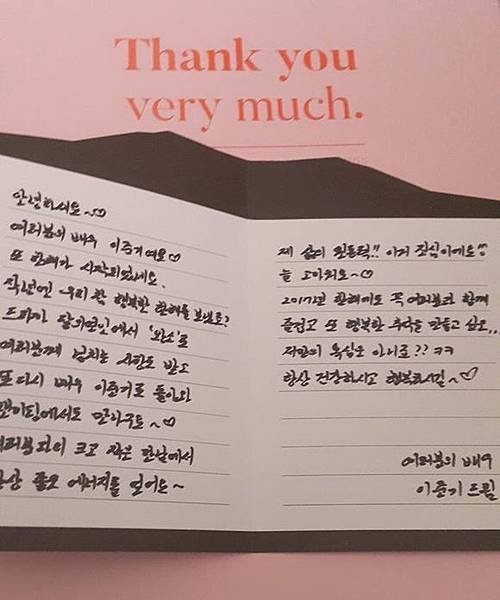 Thank you
very much.
안녕하세요~♡
여러분의 배우 이준기예요♡
또 한해가 시작되었네요.
작년엔 우리 참 행복한 한해를 보냈죠?
드라마 달의연인에서 '왕소'로
여러분께 넘치는 사랑도 받고
또 다시 배우 이준기로 돌아와
팬미팅에서도 만나구요~♡
여러분과의 크고 작은 만남에서
항상 좋은 에너지를 얻어요~
제 삶의 원동력!! 이거 진심이에요!!
늘 고마워요~♡
2017년 한해에도 꼭 여러분과 함께
즐겁고 또 행복한 추억을 만들고 싶어요..
저만의 욕심은 아니죠?? ㅋㅋ
항상 건강하시고 행복하시길~♡
여러분의 배우
이준기 드림